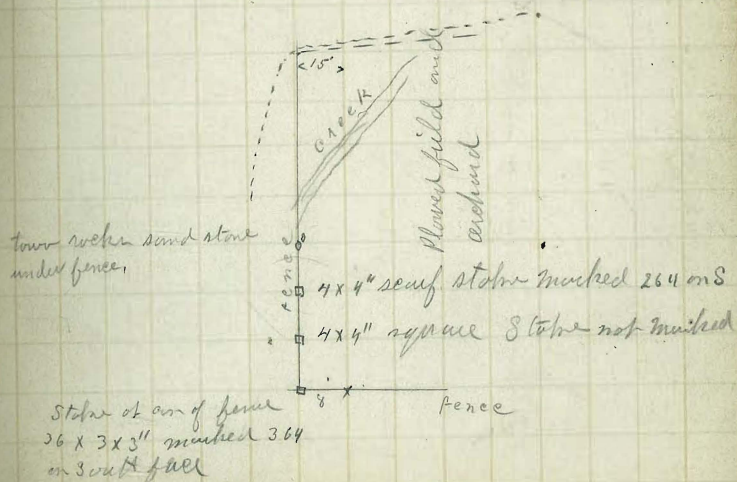 <15'>
creek
Plowed field and
orchard
town rock sand stone
under fence,
Fence
4 x 4" scarf stake marked 264 on S
4 x 4" square Stake not marked
8 x
Fence
Stake at cor of fence
36 x 3 x 3" marked 364
on South face